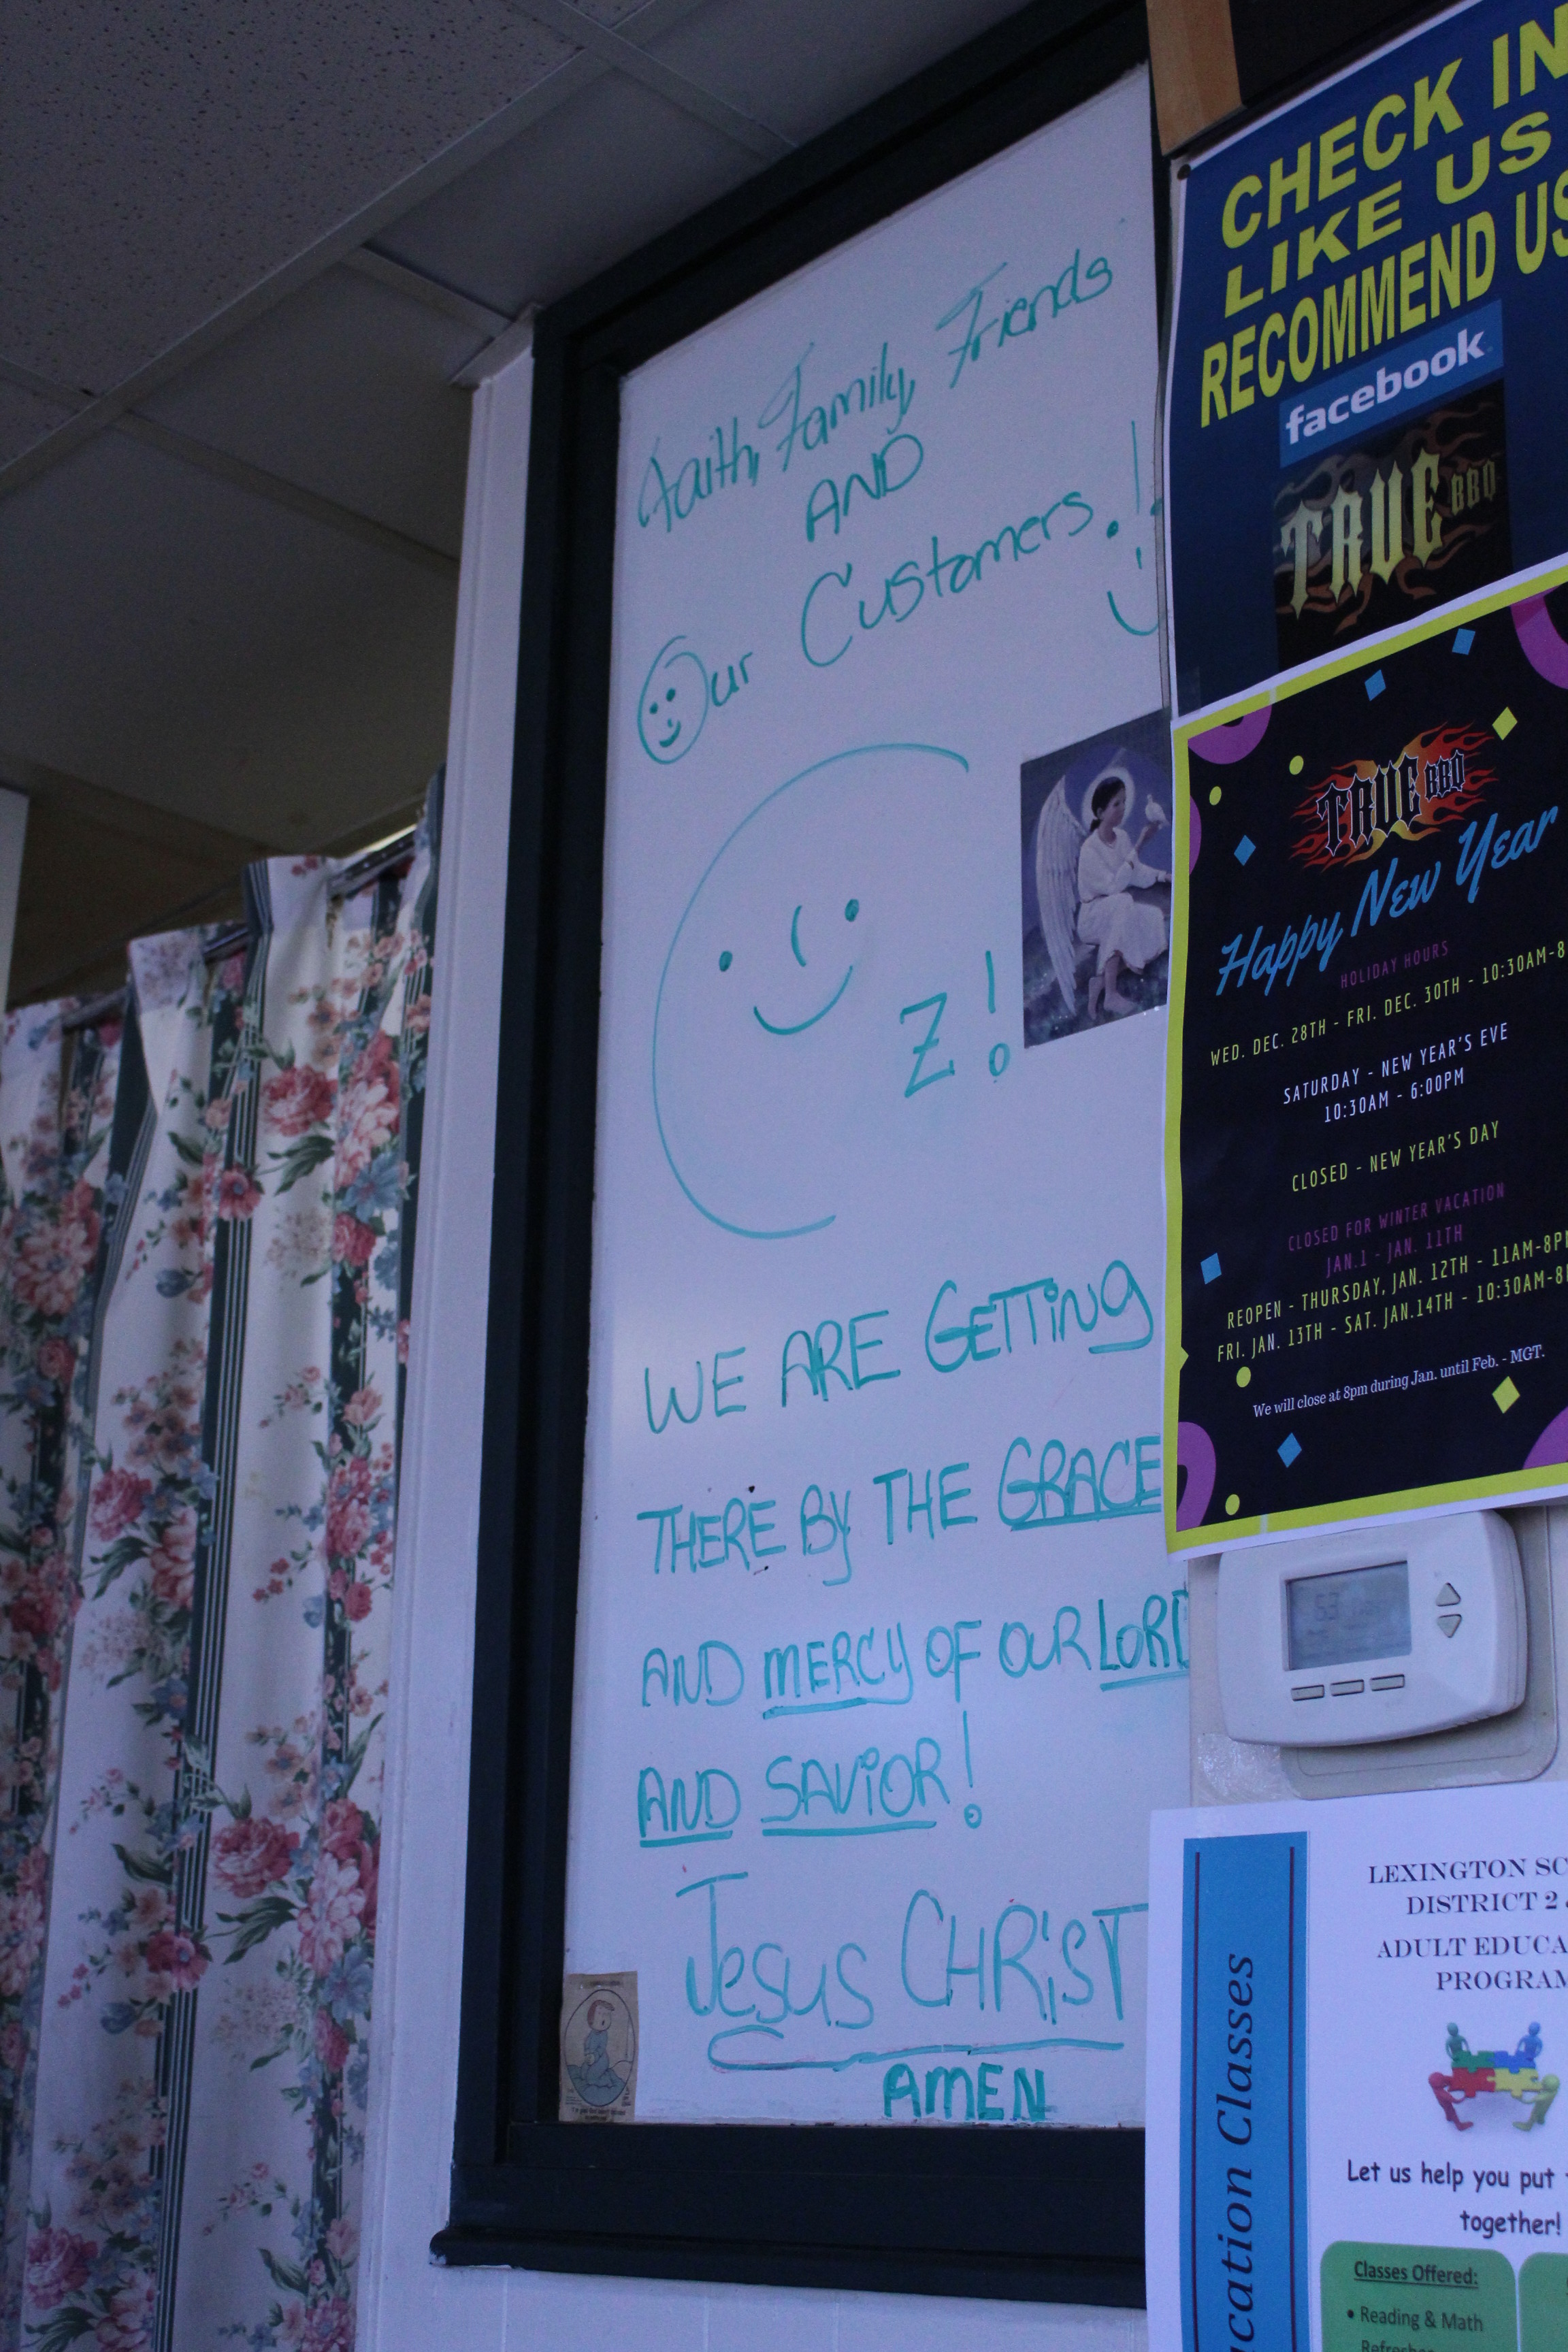 Faith, Family, Friends
AND
Our Customers!
Z!
WE ARE GETTING
THERE BY THE GRACE
AND MERCY OF OUR LORD
AND SAVIOR!
Jesus CHRIST
AMEN
CHECK IN
LIKE US
RECOMMEND US
facebook
TRUE BBQ
TRUE BBQ
Happy New Year
HOLIDAY HOURS
WED. DEC. 28TH - FRI. DEC. 30TH - 10:30AM-8
SATURDAY - NEW YEAR'S EVE
10:30AM - 6:00PM
CLOSED - NEW YEAR'S DAY
CLOSED FOR WINTER VACATION
JAN.1 - JAN. 11TH
REOPEN - THURSDAY, JAN. 12TH - 11AM-8PM
FRI. JAN. 13TH - SAT. JAN.14TH - 10:30AM-8
We will close at 8pm during Jan. until Feb. - MGT.
53
LEXINGTON SC
DISTRICT 2
ADULT EDUCA
PROGRAM
cation Classes
Let us help you put
together!
Classes Offered:
• Reading & Math